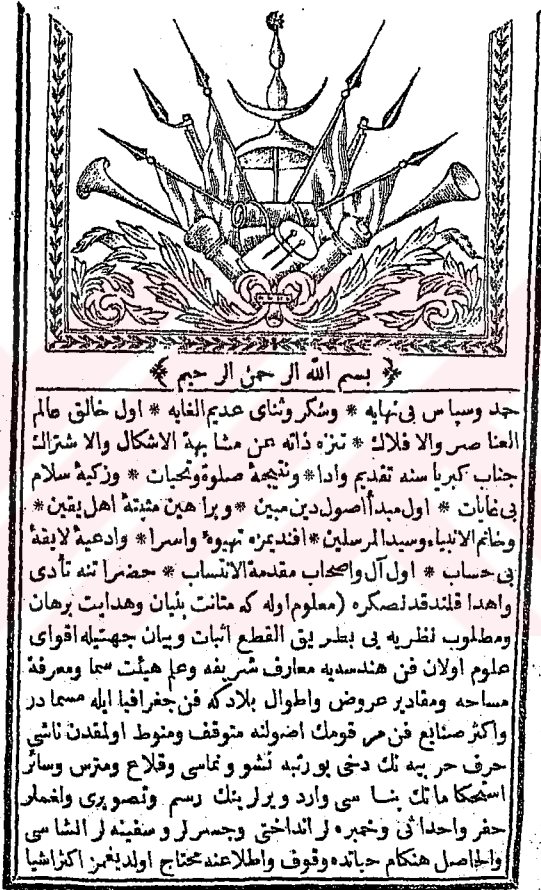 ﴿ بسم الله الرحمن الرحيم ﴾
حمد وسپاس بی نهایه * وشکر وثنای عدیم الغایه * اول خالق عالم
العناصر والافلاك * تنزه ذاته عن مشابهة الاشكال والاشتراك
جناب کبریاسنه تقدیم وادا * ونتیجهٔ صلوة وتحیات * وزکیهٔ سلام
بی غایات * اول مبدأ اصول دین مبین * وبراهین مثبتهٔ اهل یقین *
وخاتم الانبیاء وسید المرسلین * افندیمزه واسرا * وادعیهٔ لایقهٔ
بی حساب * اول آل واصحاب مقدمة الانتساب * حضراتنه تأدی
واهدا قلندقدنصکره (معلوم اوله که متانت بنیان وهدایت برهان
ومطلوب نظریه یی بطریق القطع اثبات وبیان جهتیله اقوای
علوم اولان فن هندسه یه معارف شریفه وعلم هیئت سما ومعرفة
مساحه ومقادیر عروض واطوال بلادکه فن جغرافیا ایله مسمادر
واکثر صنایع فن مرقومك اصولنه متوقف ومنوط اولمقدن ناشی
حرف حربیه نك دخی بو رتبه نشو ونماسی وقلاع ومترس وسائر
استحکاماتك بناسی وارد ویرلرینك رسم وتصویری ولغملر
حفر واحداثی وخمبره لر انداختی وجسرلر وسفینه لر انشاسی
والحاصل هنکام وقوف واطلاعنه محتاج اولدیغمز اکثر اشیا